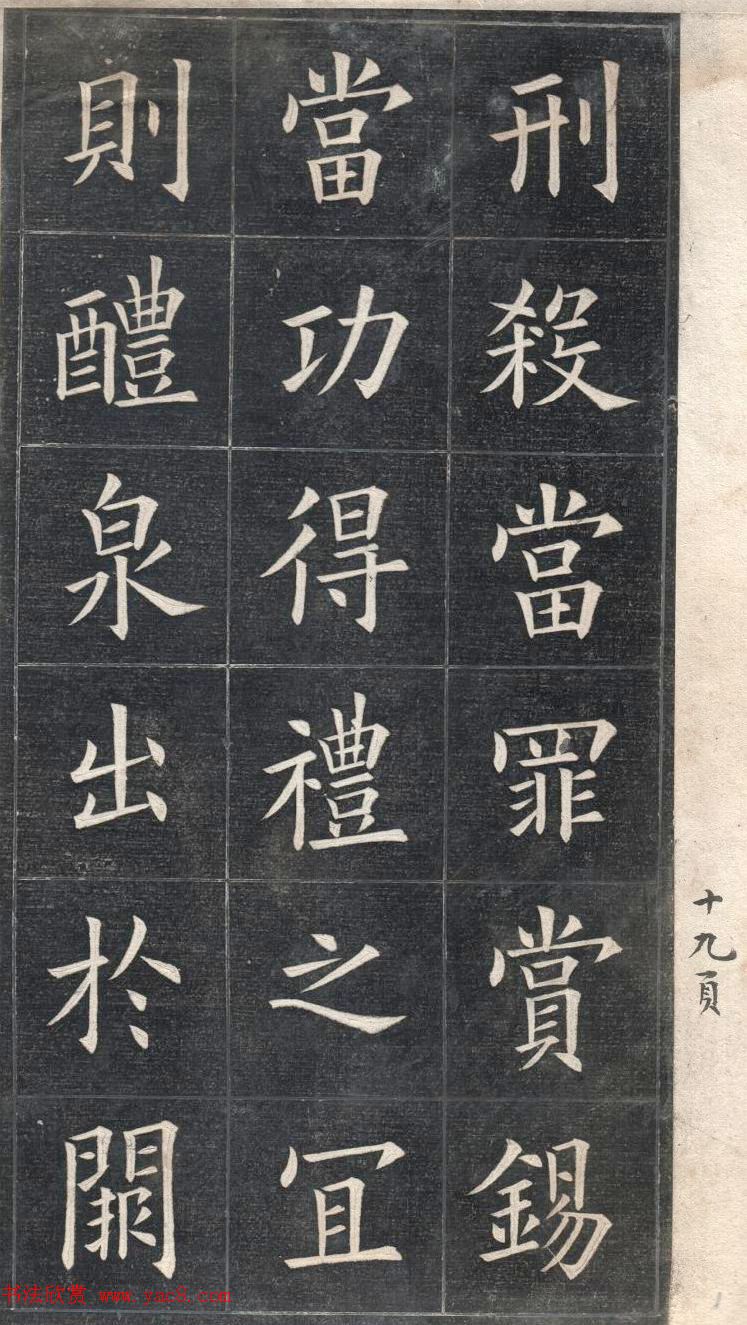 刑殺當罪賞錫
當功得禮之宜
則醴泉出於闕
十九頁
书法欣赏 www.yac8.com